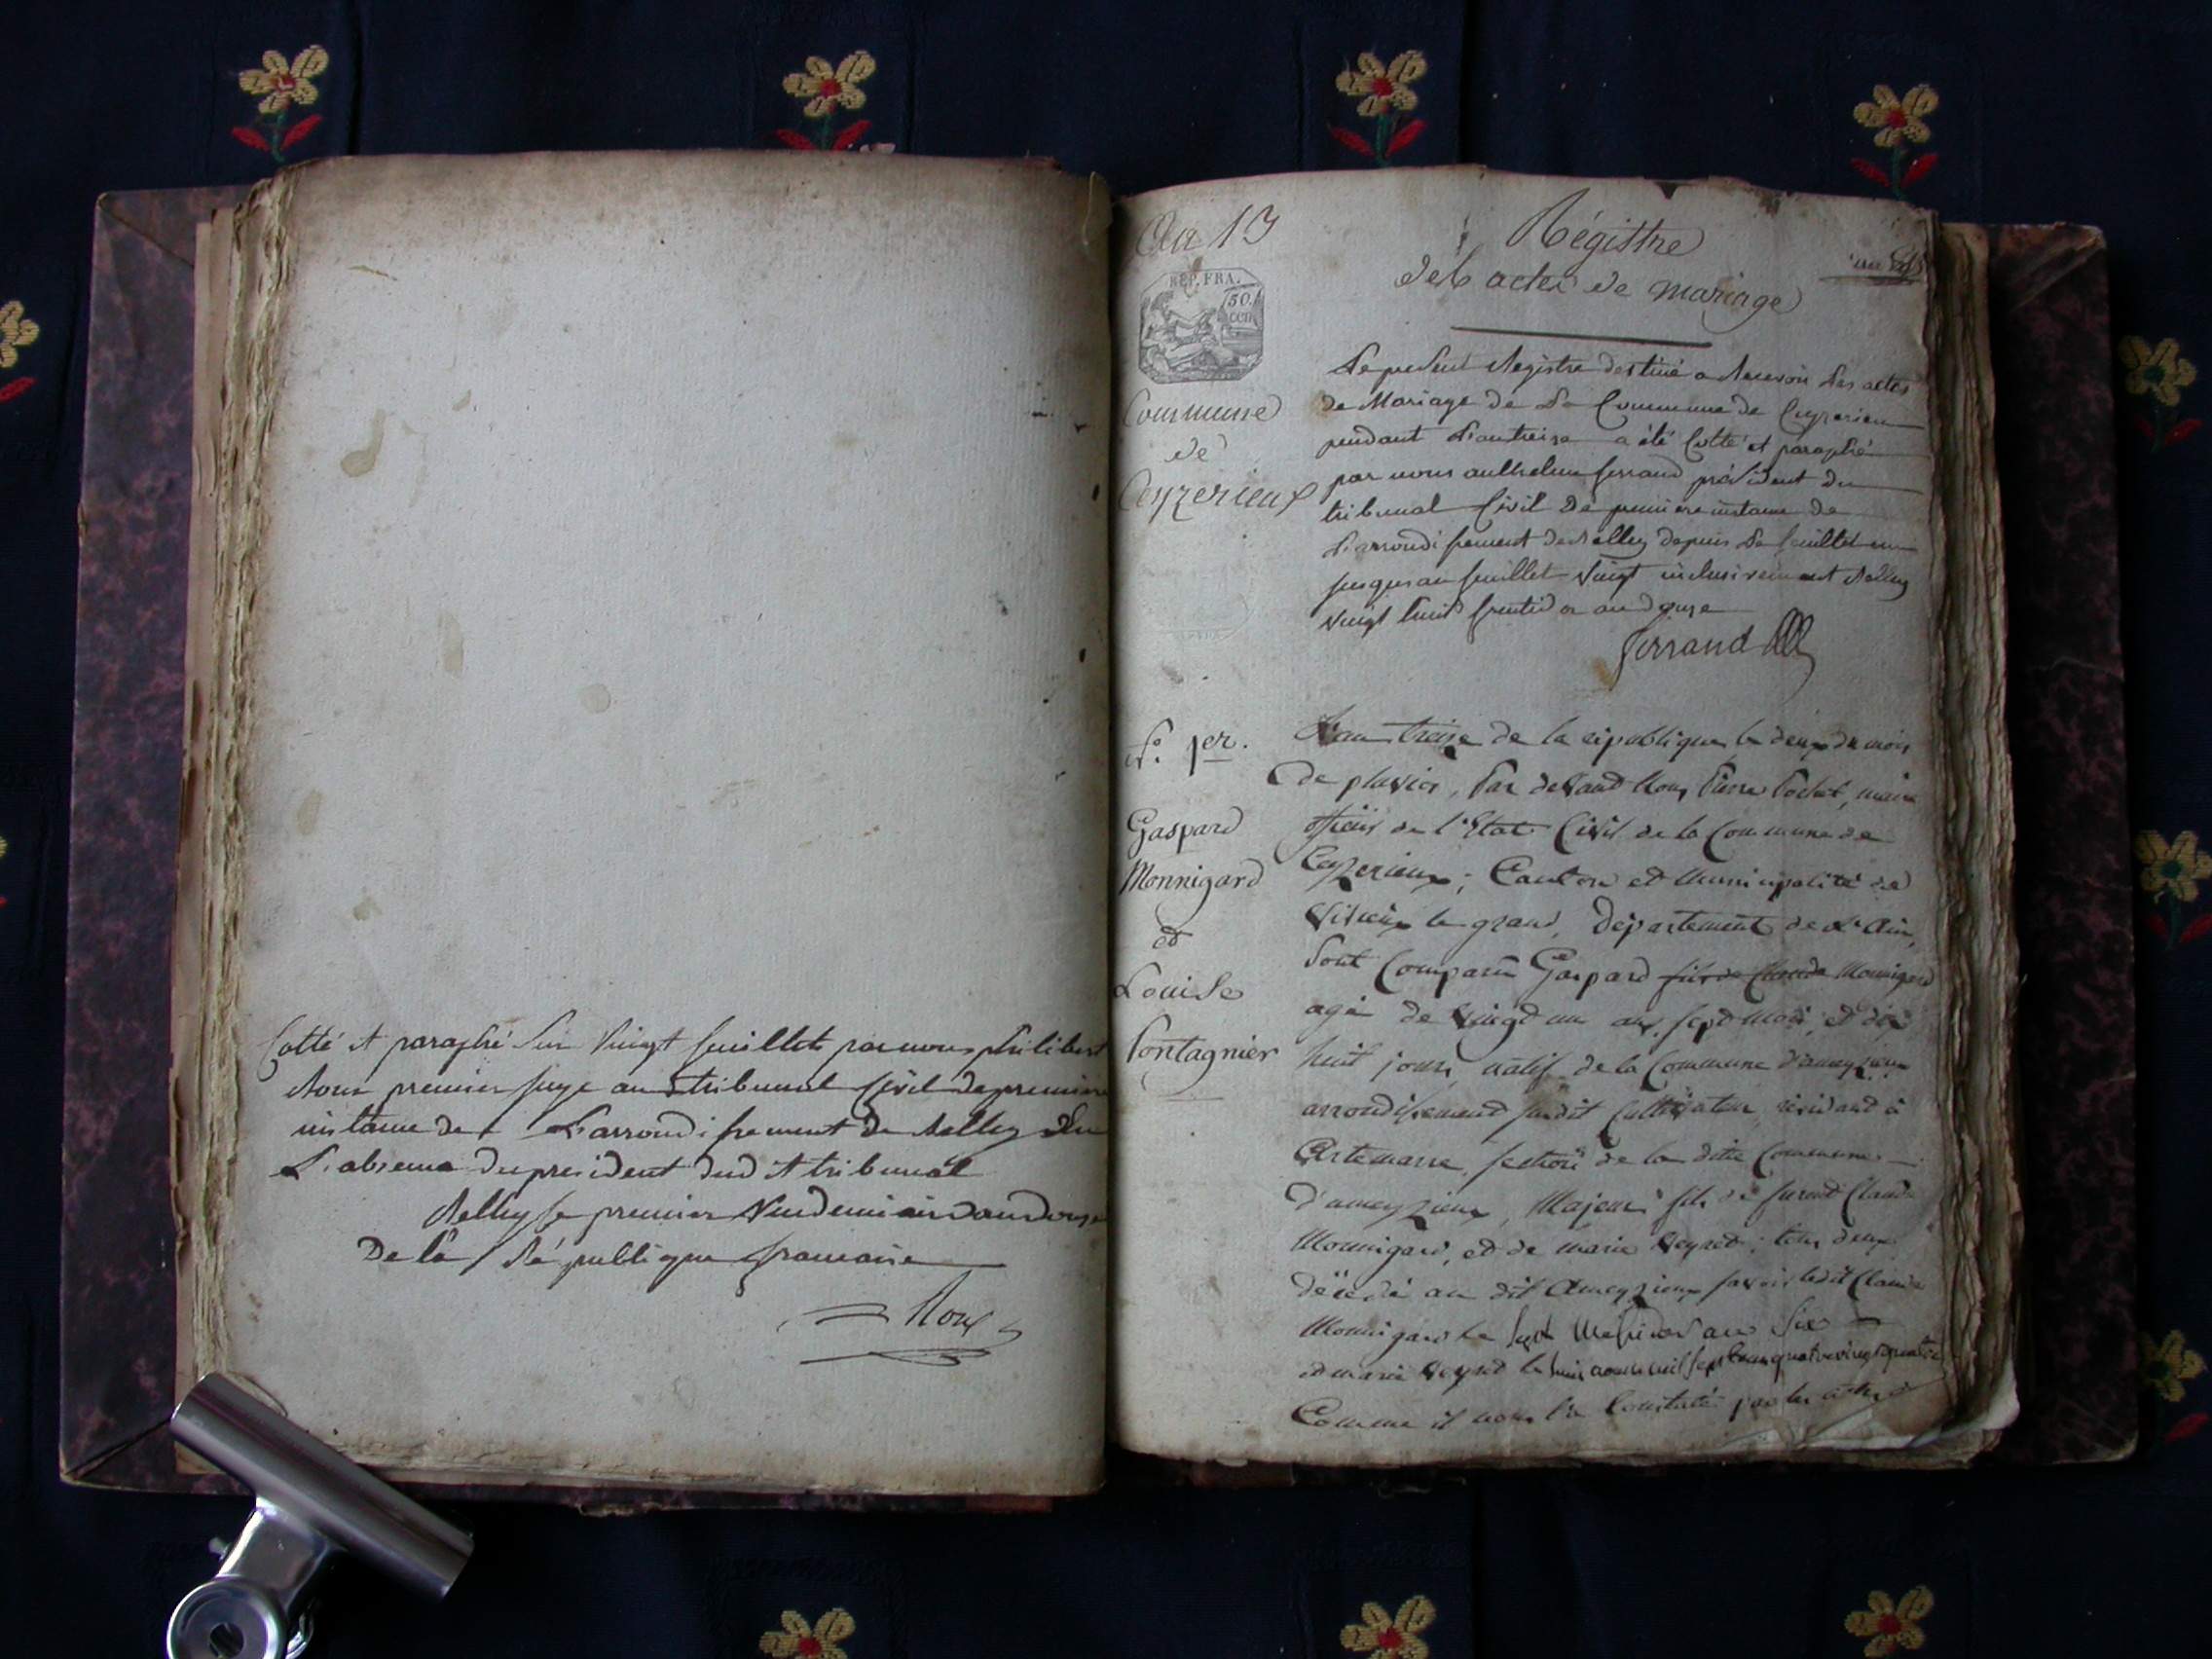 Cotté et paraphé Sur Vingt feuillets par nous philibert
Roux premier juge au tribunal Civil de premiere
instance de L'arrondissement de Belley En
L'absence du president dud it tribunal
Belley le premier Vendemiaire an douze
De la République francaise
Roux
An 13
REP. FRA.
50.
cen
Commune
de
Ceyzerieux
Régistre
des actes de mariage
an 13
Le present Registre destiné a Recevoir Les actes
de Mariage de La Commune de Ceyzerieu
pendant L'an treize a été Cotté et paraphé
par nous anthelme ferrand président du
tribunal Civil De premiere instance de
L'arrondissement de Belley depuis Le feuillet un
jusques au feuillet Vingt inclusivement Belley
Vingt huit fructidor an douze
ferrand
N°. 1er.
Gaspard
Monnigard
et
Louise
Pontagnier
L'an treize de la république le deux du mois
de pluviose, Par devant Nous Pierre Pochet, maire
officier de l'Etat Civil de la Commune de
Ceyzerieux; Canton et Municipalité de
Virieux le grand, Département de L'Ain,
Sont Comparu Gaspard fils de Claude Monnigard
agé de Vingt un ans, sept mois, et dix
huit jours, natif de la Commune d'ameyzieux
arrondissement susdit Cultivateur, résidant à
Artemarre, section de la dite Commune
d'ameyzieux, Majeur fils de furent Claude
Monnigard, et de marie Veyret; tous deux
décédé au dit Ameyzieux savoir ledit Claude
Monnigard le Sept Messidor an Six
et marie Veyret le huit aoust mil sept cent quatre vingt
Comme il nous l'a Constaté par les actes